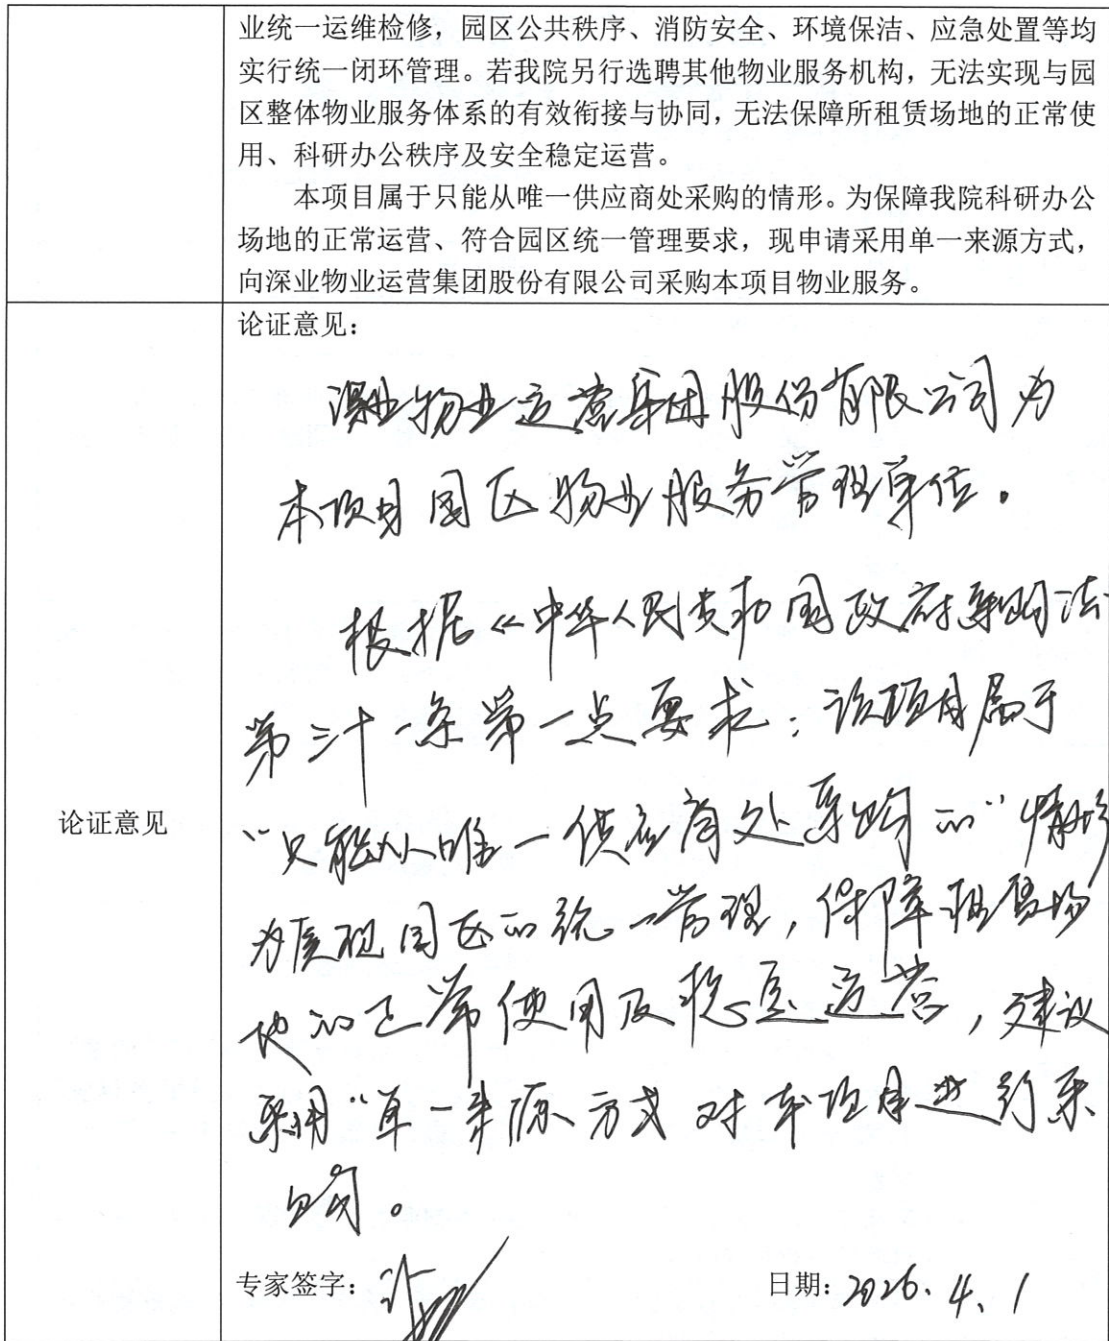 业统一运维检修，园区公共秩序、消防安全、环境保洁、应急处置等均
实行统一闭环管理。若我院另行选聘其他物业服务机构，无法实现与园
区整体物业服务体系的有效衔接与协同，无法保障所租赁场地的正常使
用、科研办公秩序及安全稳定运营。
本项目属于只能从唯一供应商处采购的情形。为保障我院科研办公
场地的正常运营、符合园区统一管理要求，现申请采用单一来源方式，
向深业物业运营集团股份有限公司采购本项目物业服务。
论证意见
论证意见：
深业物业运营集团股份有限公司为
本项目园区物业服务管理单位。
根据《中华人民共和国政府采购法
第三十一条第一点要求；该项目属于
“只能从唯一供应商处采购的”情形
为实现园区的统一管理，保障租赁场
地的正常使用及稳定运营，建议
采用“单一来源方式对本项目进行采
购。
专家签字：
日期：2026.4.1